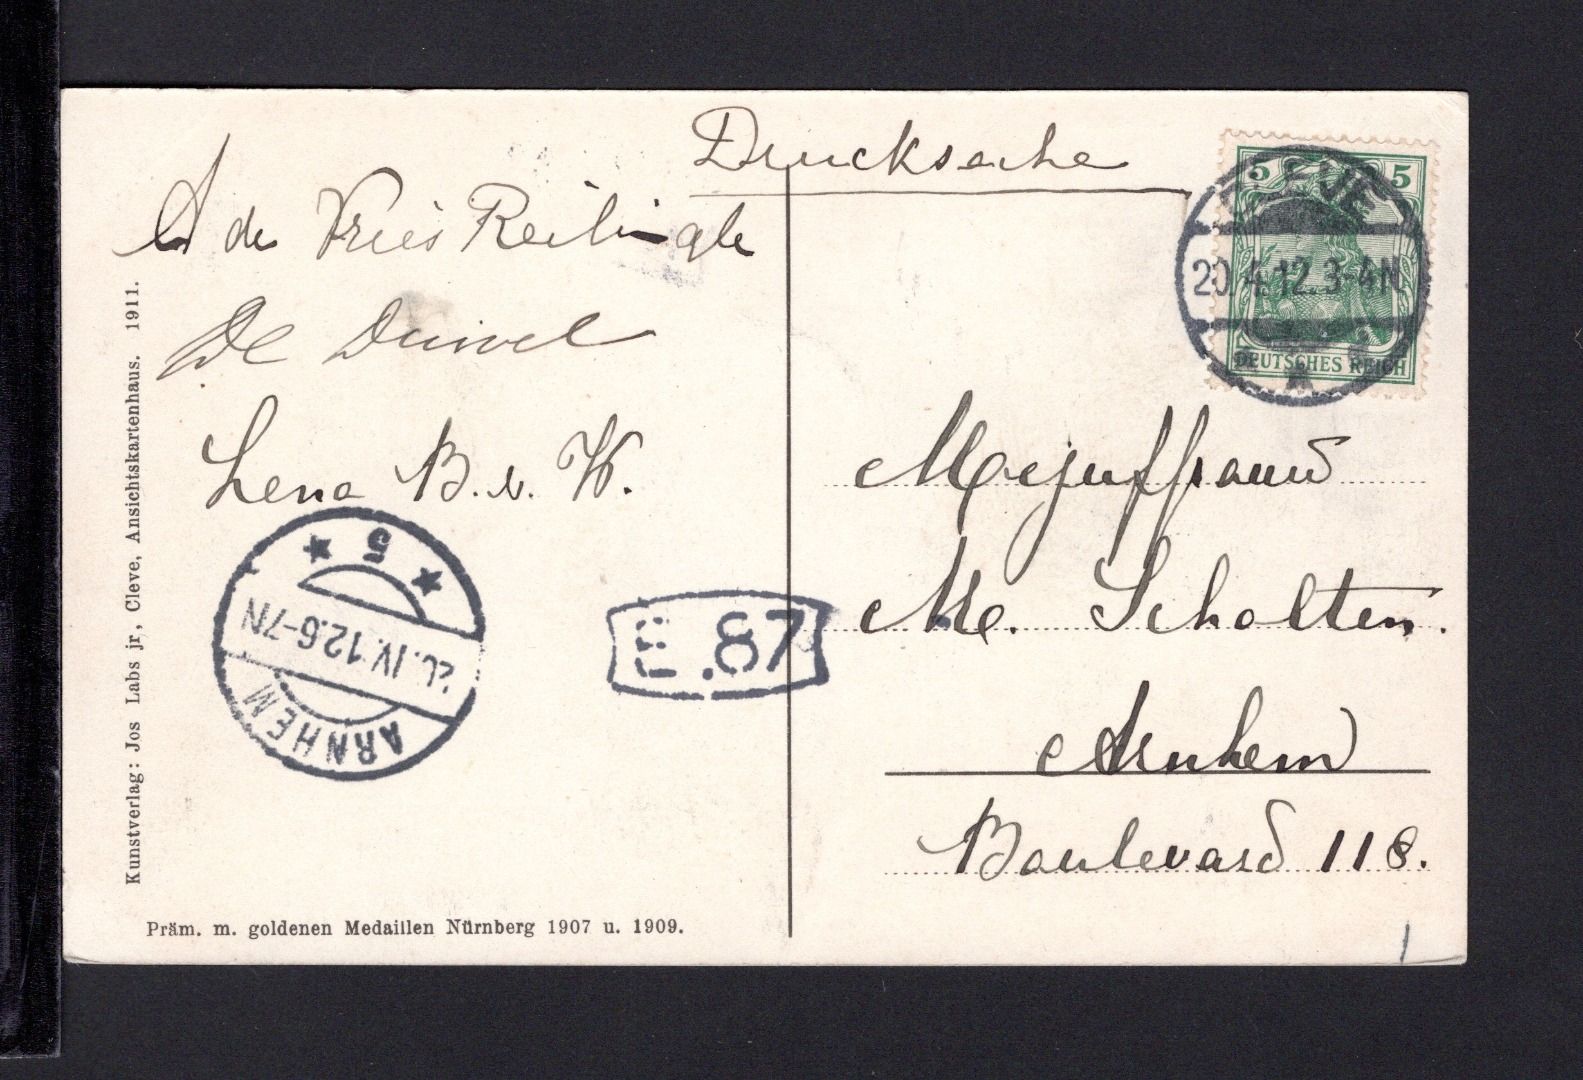 Drucksache
A de Vries Reilingh
De Duivel
Lena B. v. W.
Kunstverlag: Jos Labs jr, Cleve, Ansichtskartenhaus. 1911.
Präm. m. goldenen Medaillen Nürnberg 1907 u. 1909.
5 5
DEUTSCHES REICH
CLEVE
20.4.12.3-4N
Mejuffrouw
M. Scholten.
Arnhem
Boulevard 118.
E.87
5
.IV.12.6-7N
ARNHEM